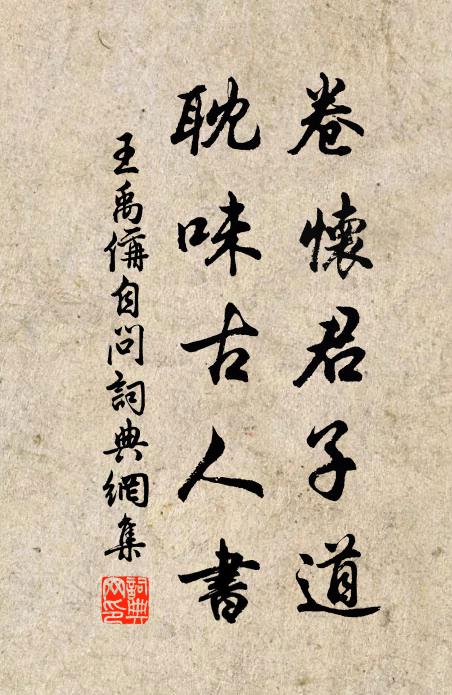 卷懷君子道
耽味古人書
王禹偁自問詞典網集
詞典網印